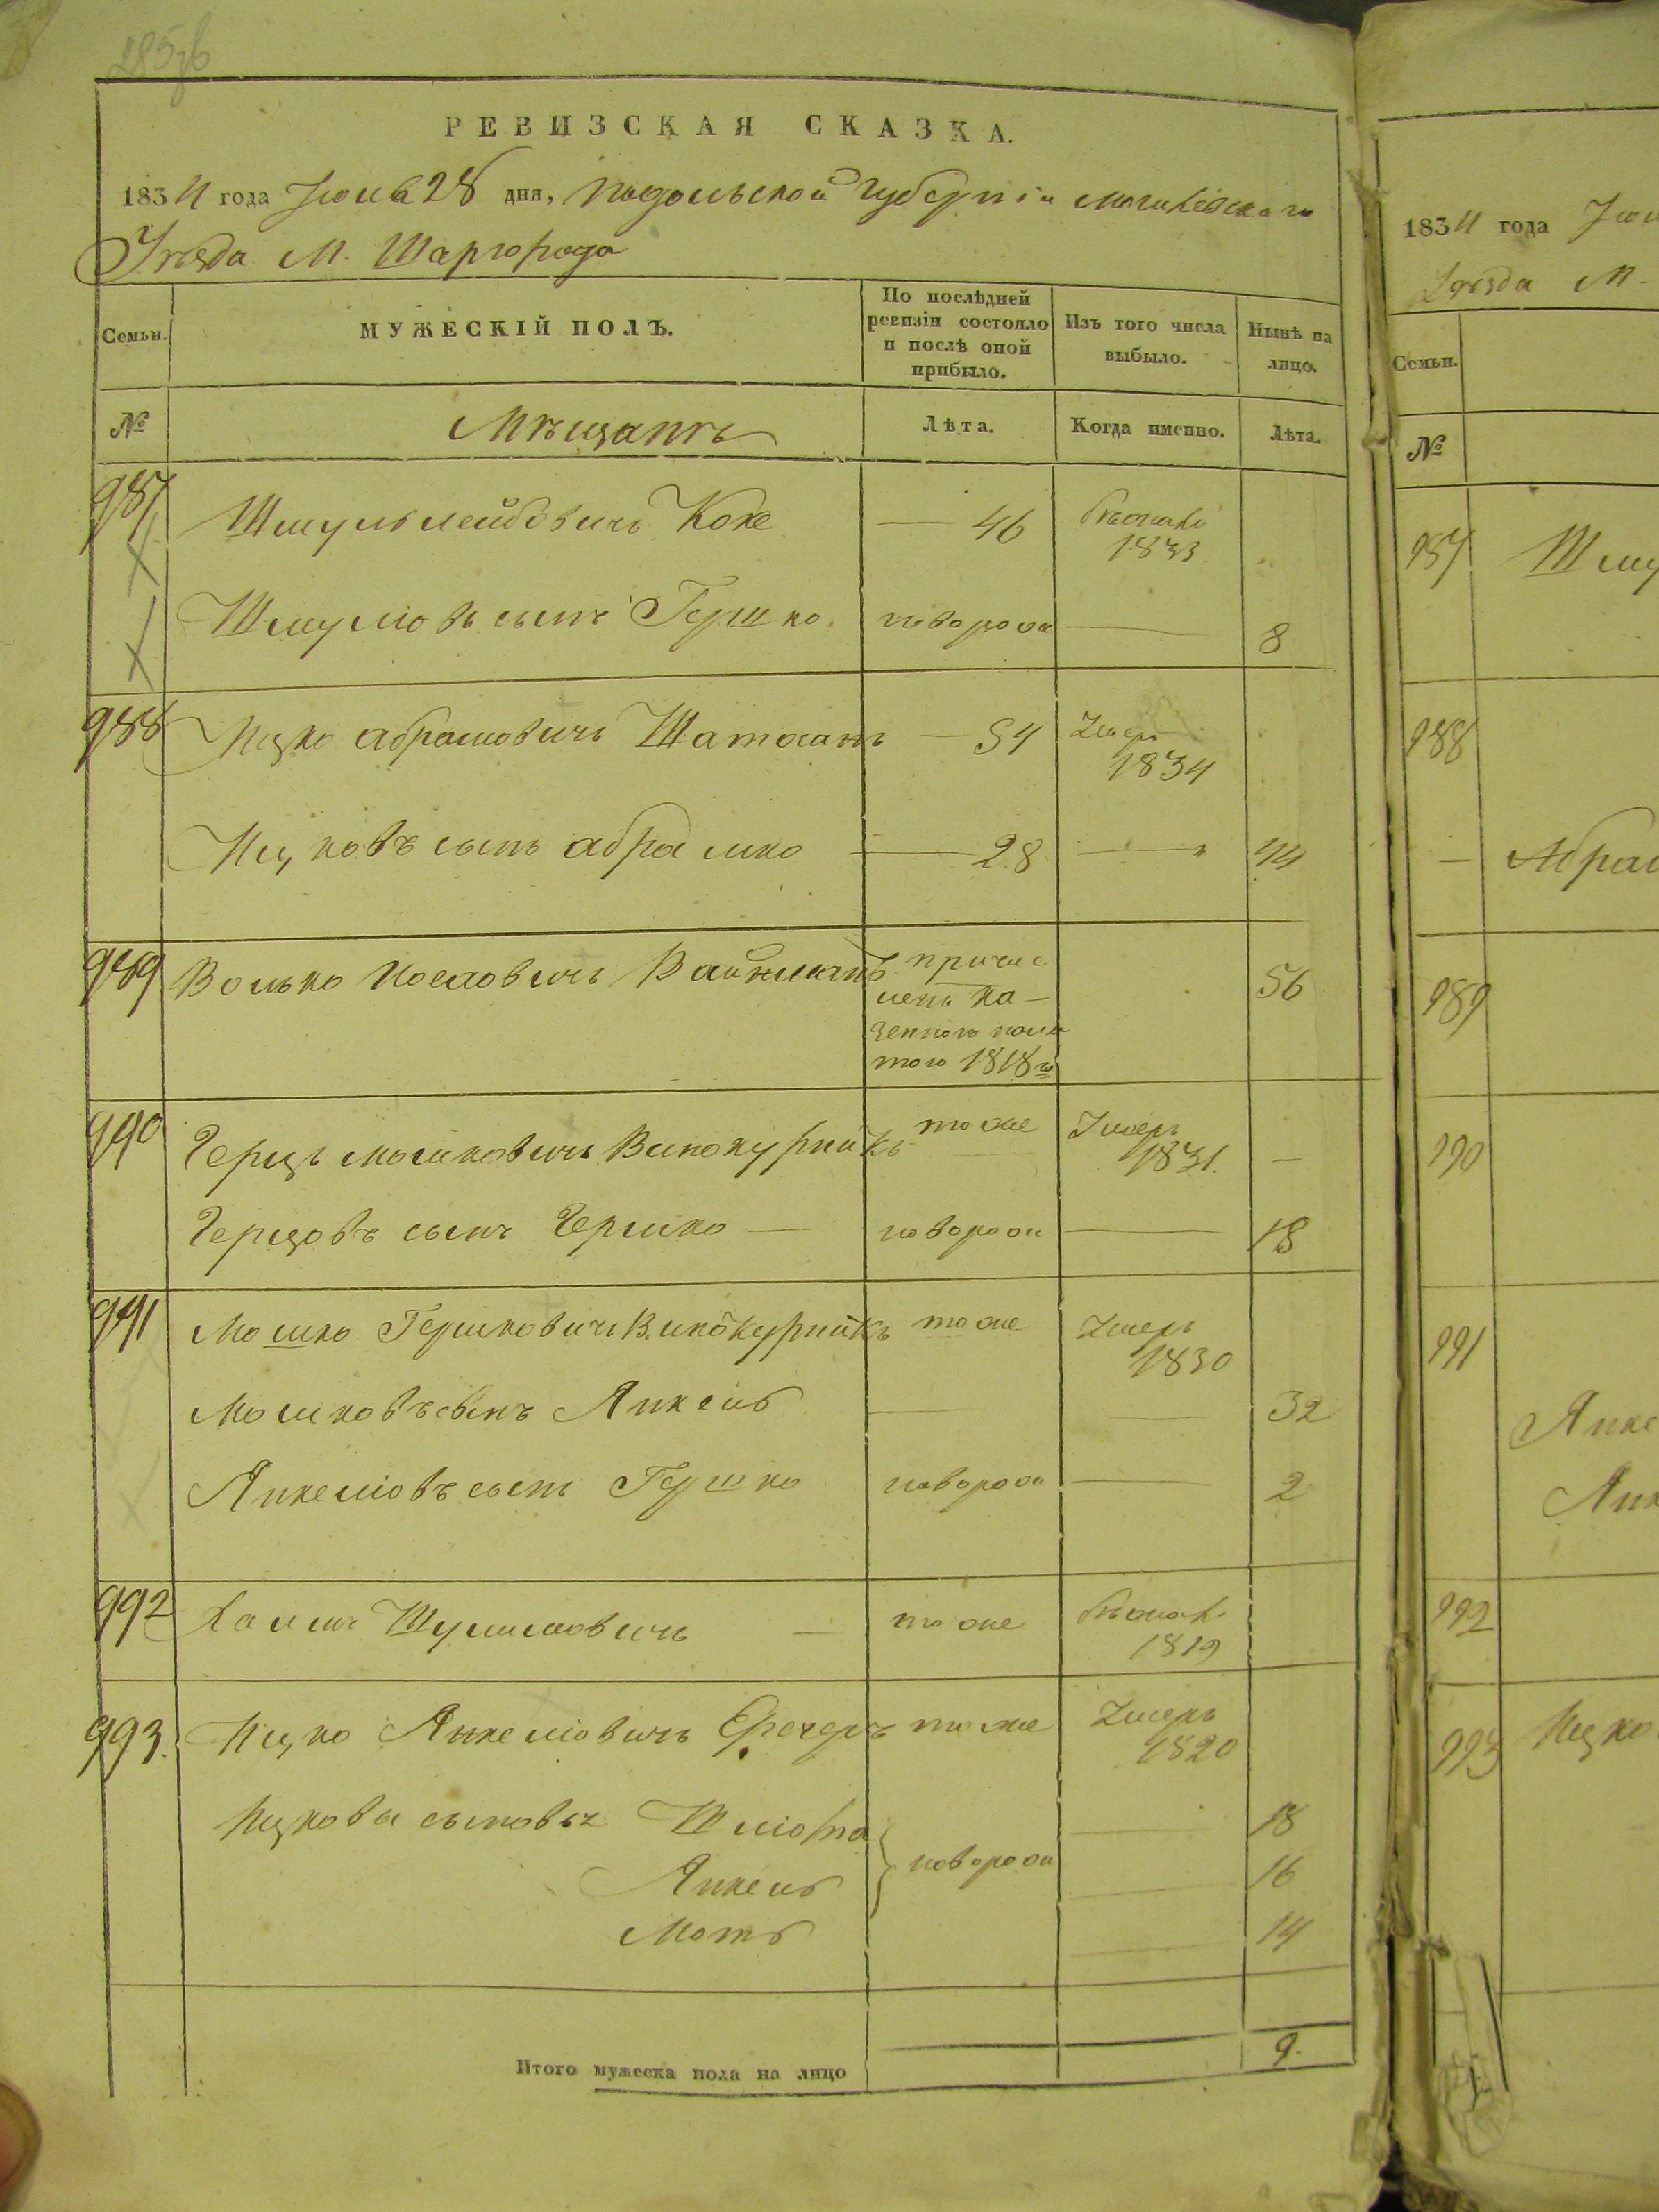 РЕВИЗСКАЯ СКАЗКА.
1834 года Июня 28 дня, Подольской Губерніи Могилевскаго
Уѣзда М. Шаргорода
Семьи.
МУЖЕСКІЙ ПОЛЪ.
По послѣдней ревизіи состояло и послѣ оной прибыло.
Изъ того числа выбыло.
Нынѣ на лицо.
№
Мѣщанъ
Лѣта.
Когда именно.
Лѣта.
987 Шмуль Лейбовичъ — 46 бѣжалъ 1833
Шмулювъ сынъ Гершко. новорож — 8
988 Ицко Абрамовичъ — 54 Умеръ 1834
Ицковъ сынъ Абрамко — 28 — 44
989 Волько Иосіовичъ Вайнманъ причис
ленъ ка-
зенною пала
тою 1818го
56
990 Герцъ Мошковичъ Винокурникъ тоже Умеръ 1831. —
Герцовъ сынъ Гершко — новорож — 18
991 Мошко Гершковичъ Винокурникъ тоже Умеръ 1830
Мошковъ сынъ Янкель — — 32
Янкеліовъ сынъ Гершко новорож — 2
992 Хаимъ — тоже бѣжалъ 1819
993. Ицко Янкеліовичъ тоже Умеръ 1820
Ицковы сыновья Шліома — 18
Янкель новорож — 16
Мотъ — 14
Итого мужеска пола на лицо 9.
1834 года
Уѣзда М.
Семьи.
№
987 Шму
988
— Абрам
989
990
991
Янке
Янк
992
993 Ицко